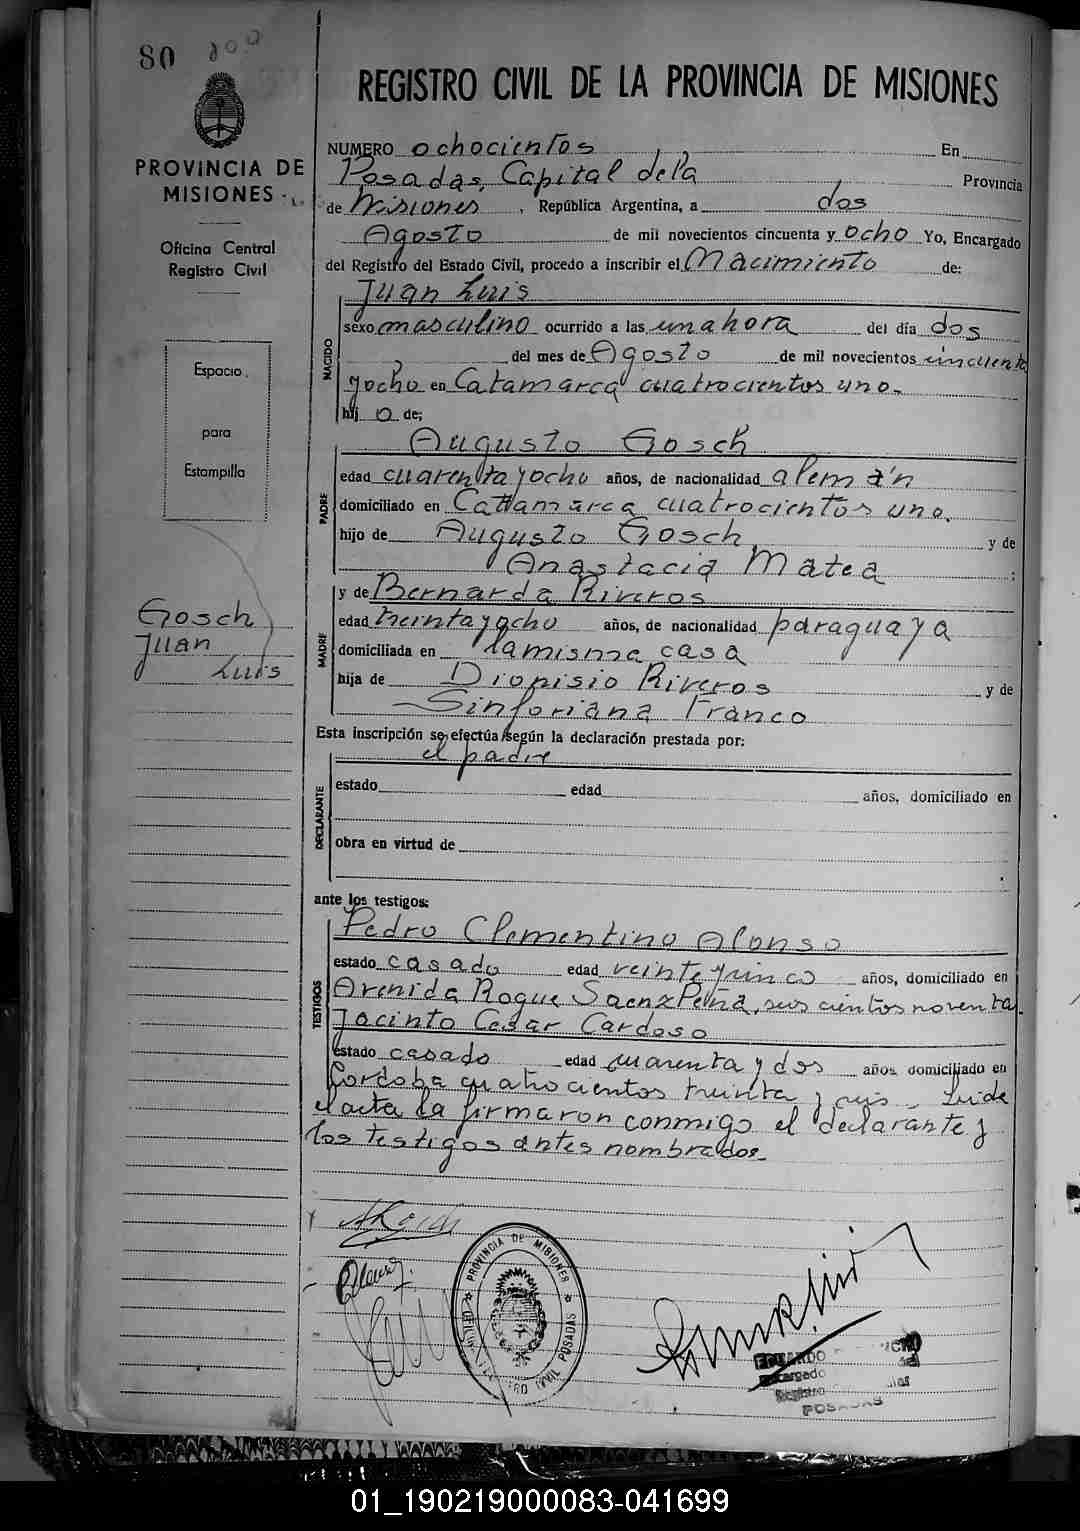 80 800
REGISTRO CIVIL DE LA PROVINCIA DE MISIONES
PROVINCIA DE
MISIONES
Oficina Central
Registro Civil
Espacio
para
Estampilla
Gosch
Juan
Luis
NUMERO ochocientos En
Posadas, Capital de la Provincia
de Misiones, República Argentina, a dos
Agosto de mil novecientos cincuenta y ocho Yo, Encargado
del Registro del Estado Civil, procedo a inscribir el Nacimiento de:
Juan Luis
NACIDO
sexo masculino ocurrido a las una hora del día dos
del mes de Agosto de mil novecientos cincuenta
y ocho en Catamarca cuatrocientos uno.
hij o de;
Augusto Gosch
PADRE
edad cuarenta y ocho años, de nacionalidad alemán
domiciliado en Catamarca cuatrocientos uno.
hijo de Augusto Gosch y de
Anastacia Matea :
y de Bernarda Riveros
MADRE
edad treinta y ocho años, de nacionalidad paraguaya
domiciliada en la misma casa
hija de Dionisio Riveros y de
Sinforiana Franco
Esta inscripción se efectúa según la declaración prestada por:
el padre
DECLARANTE
estado edad años, domiciliado en
obra en virtud de
ante los testigos:
Pedro Clementino Alonso
TESTIGOS
estado casado edad veinte y cinco años, domiciliado en
Avenida Roque Saenz Peña, seis cientos noventa
Jacinto Cesar Cardoso
estado casado edad cuarenta y dos años, domiciliado en
Cordoba cuatrocientos treinta y seis. Leida
el acta la firmaron conmigo el declarante y
los testigos antes nombrados.
PROVINCIA DE MISIONES
CIVIL POSADAS
EDUARDO
Encargado del
Registro
POSADAS
01_190219000083-041699